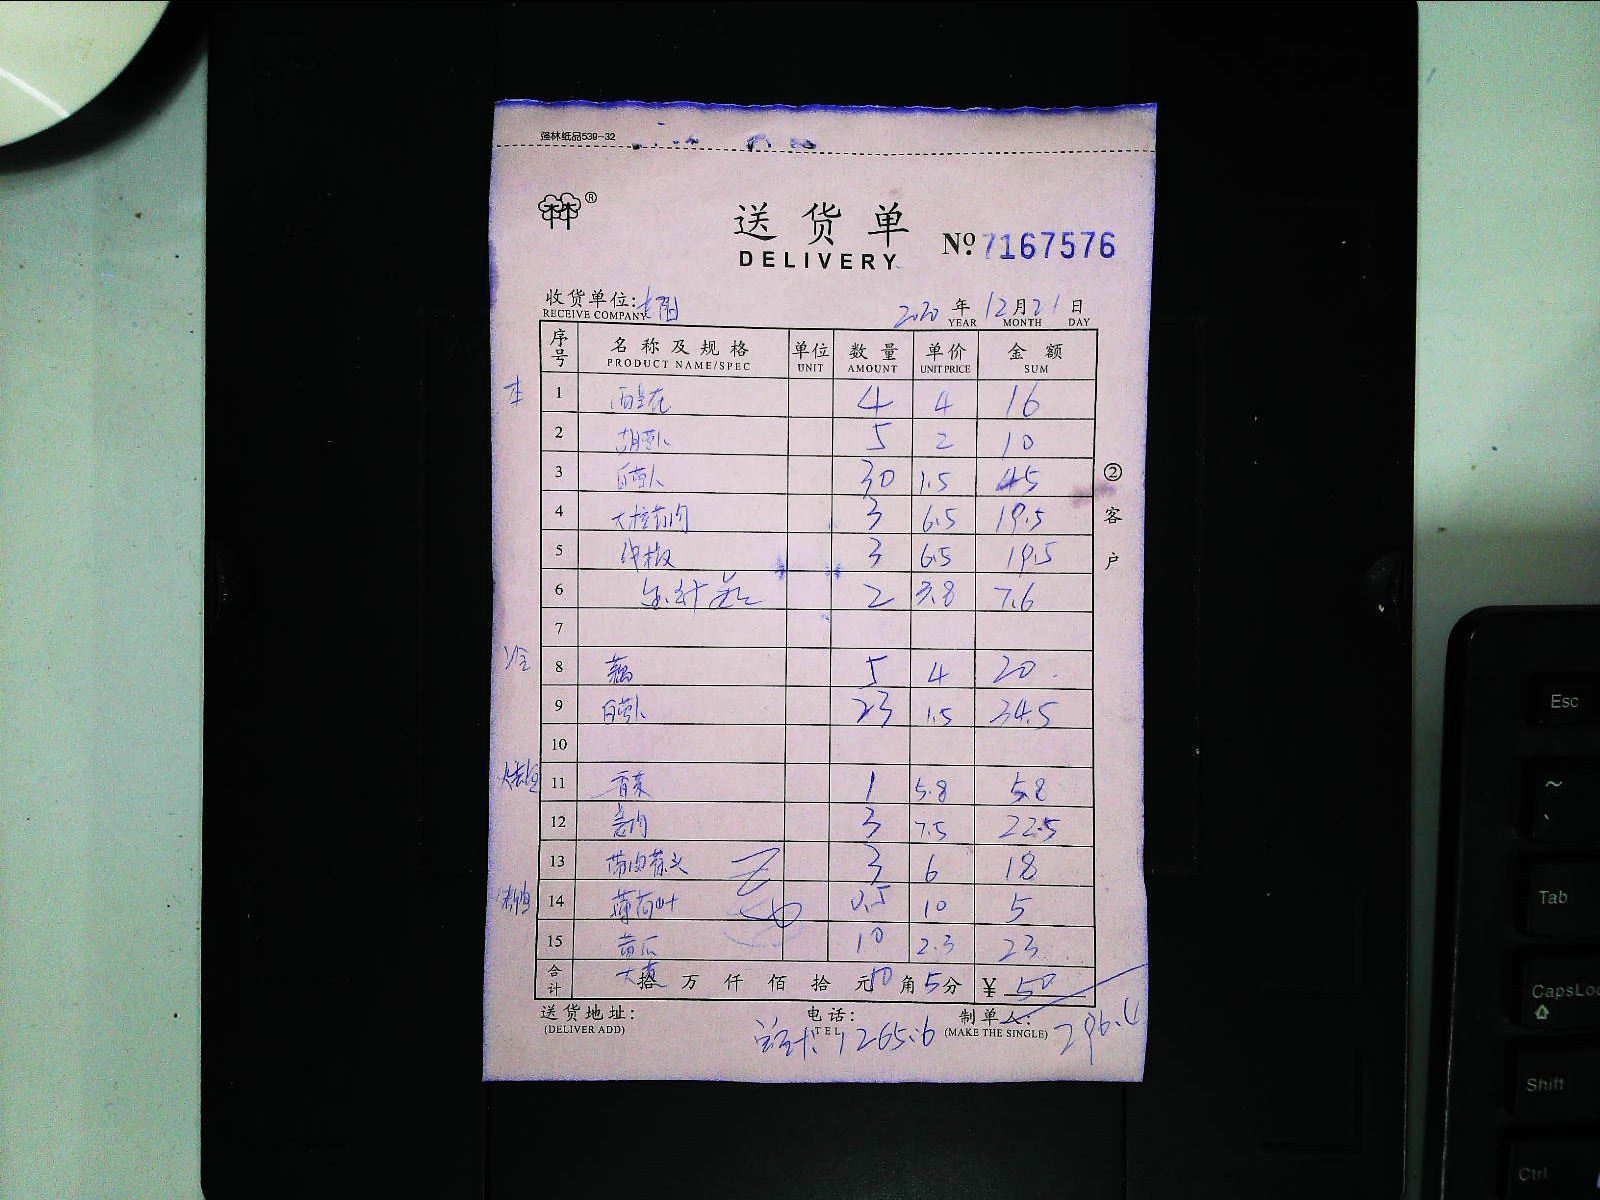 强林纸品539-32
林®
送货单
DELIVERY
No 7167576
收货单位:
RECEIVE COMPANY
2020 年 12 月 21 日
YEAR MONTH DAY
序号 名称及规格 单位 数量 单价 金额
PRODUCT NAME/SPEC UNIT AMOUNT UNIT PRICE SUM
1 西兰花 4 4 16
2 胡萝卜 5 2 10
3 白萝卜 30 1.5 45
4 3 6.5 19.5
5 线椒 3 6.5 19.5
6 2 3.8 7.6
7
8 藕 5 4 20
9 白萝卜 23 1.5 34.5
10
11 香菜 1 5.8 5.8
12 3 7.5 22.5
13 3 6 18
14 薄荷叶 0.5 10 5
15 黄瓜 10 2.3 23
合计 拾 万 仟 佰 拾 元 10 角 5 分 ¥ 50
②客户
送货地址: 电话: 制单人:
(DELIVER ADD) TEL (MAKE THE SINGLE)
1265.6
296.4
Esc
~
Tab
CapsLoc
Shift
Ctrl